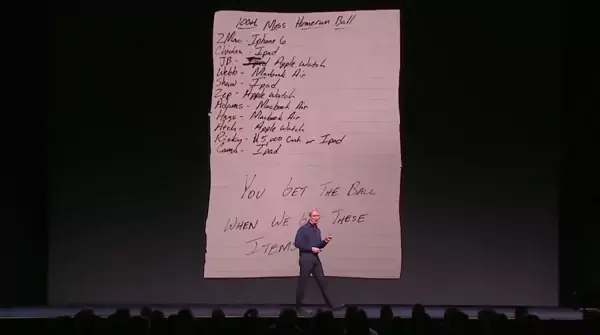 100th Moss Homerun Ball
ZMac - Iphone 6
Chicken - Ipad
JB - Apple Watch
Webb - Macbook Air
Shaw - Ipad
Zep - Apple Watch
Adams - Macbook Air
Hags - Macbook Air
Apple Watch
- $5,000 Cash or Ipad
- Ipad
YOU GET THE BALL
WHEN WE THESE
ITEMS